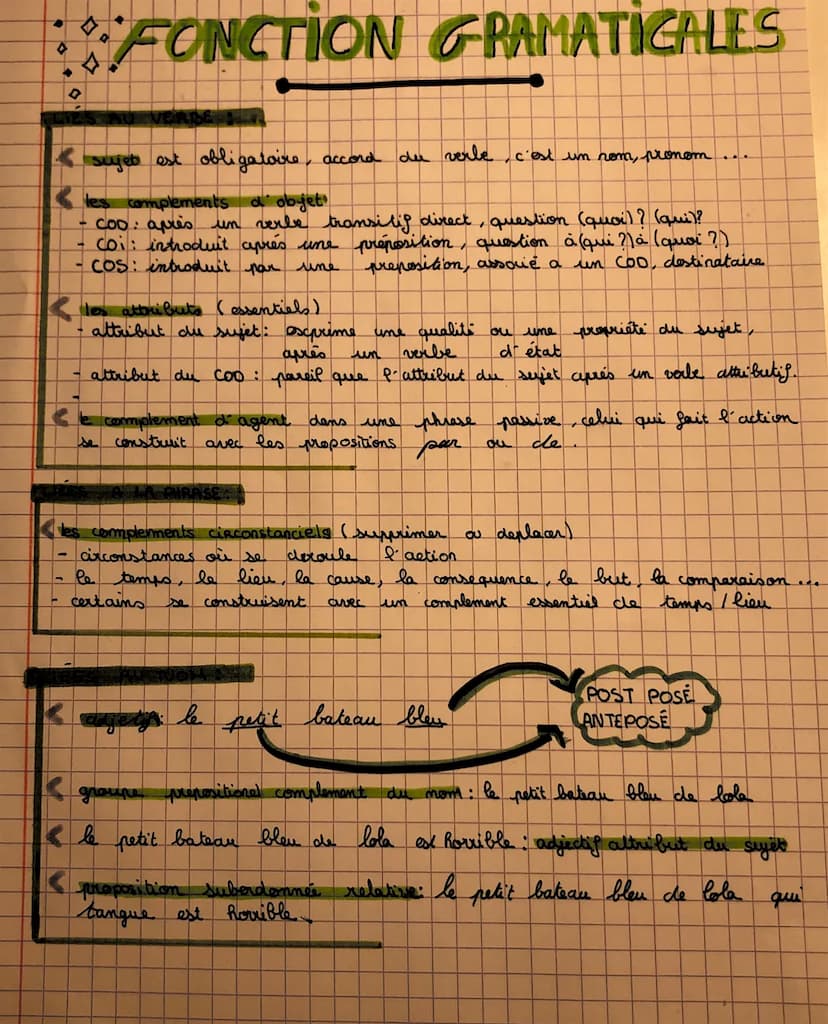 FONCTION GRAMATICALES
LIÉS AU VERBE :
sujet est obligatoire, accord du verbe, c'est un nom, pronom ...
les complements d'objet
- COD : après un verbe transitif direct, question (quoi)? (qui)?
- COi : introduit après une préposition, question à (qui ?) à (quoi ?)
- COS : introduit par une preposition, associé a un COD, destinataire
les attributs (essentiels)
- attribut du sujet : exprime une qualité ou une propriété du sujet,
après un verbe d'état
- attribut du COD : pareil que l'attribut du sujet après un verbe attributif.
-
le complement d'agent dans une phrase passive, celui qui fait l'action
se construit avec les propositions par ou de.
LIÉES A LA PHRASE :
les complements circonstanciels (supprimer ou deplacer)
- circonstances où se deroule l'action
- le temps, le lieu, la cause, la consequence, le but, la comparaison ...
- certains se construisent avec un complement essentiel de temps / lieu
LIÉES AU NOM :
adjectif : le petit bateau bleu
POST POSÉ
ANTEPOSÉ
groupe prepositionel complement du nom : le petit bateau bleu de lola
le petit bateau bleu de lola est horrible : adjectif attribut du sujet
proposition subordonnée relative : le petit bateau bleu de lola qui
tangue est horrible.